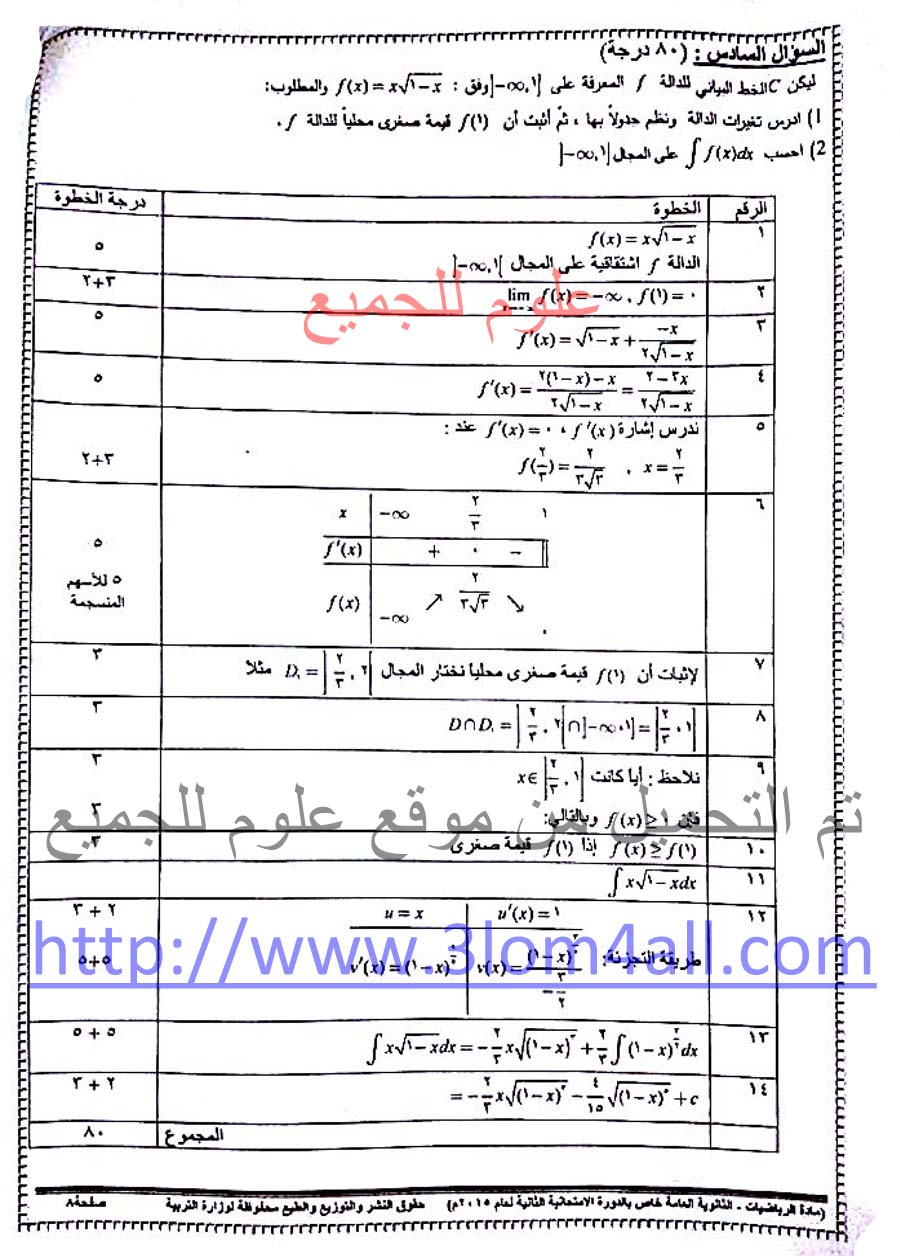 السؤال السادس : (٨٠ درجة)
ليكن C الخط البياني للدالة f المعرفة على ]-∞,١] وفق : f(x) = x√(١-x) والمطلوب:
1) ادرس تغيرات الدالة ونظم جدولاً بها ، ثمّ أثبت أن f(١) قيمة صغرى محلياً للدالة f .
2) احسب ∫ f(x)dx على المجال ]-∞,١]
الرقم الخطوة درجة الخطوة
١ f(x) = x√(١-x)
الدالة f اشتقاقية على المجال ]-∞,١[ ٥
٢ lim f(x) = -∞ , f(١) = ٠ ٣+٢
٣ f'(x) = √(١-x) + -x/(٢√(١-x)) ٥
٤ f'(x) = (٢(١-x)-x)/(٢√(١-x)) = (٢-٣x)/(٢√(١-x)) ٥
٥ ندرس إشارة f'(x) ، f'(x) = ٠ عند :
x = ٢/٣ , f(٢/٣) = ٢/(٣√٣) ٣+٢
٦ x -∞ ٢/٣ ١
f'(x) + ٠ - ٥
f(x) -∞ ↗ ٢/(٣√٣) ↘ ٠ ٥ للأسهم
المنسجمة
٧ لإثبات أن f(١) قيمة صغرى محلياً نختار المجال D₁ = ]٢/٣ , ٢[ مثلاً ٣
٨ D∩D₁ = ]٢/٣ , ٢[∩]-∞,١] = ]٢/٣ , ١] ٣
٩ نلاحظ : أيا كانت x∈ ]٢/٣ , ١] ٣
فإن f(x) ≥ ١ وبالتالي: ٣
١٠ f(x) ≥ f(١) إذا f(١) قيمة صغرى ٣
١١ ∫ x√(١-x)dx
١٢ u = x u'(x) = ١ ٣ + ٢
طريقة التجزئة: v'(x) = (١-x)^(١/٢) v(x) = (١-x)^(٣/٢)/(-٣/٢) ٥+٥
١٣ ∫ x√(١-x)dx = -٢/٣ x√((١-x)^٣) + ٢/٣ ∫ (١-x)^(٣/٢)dx ٥ + ٥
١٤ = -٢/٣ x√((١-x)^٣) - ٤/١٥ √((١-x)^٥) + c ٣ + ٢
المجموع ٨٠
علوم للجميع
تم التحميل من موقع علوم للجميع
http://www.3lom4all.com
(مادة الرياضيات - الثانوية العامة خاص بالدورة الامتحانية الثانية لعام ٢٠١٥م) حقوق النشر والتوزيع والطبع محفوظة لوزارة التربية صفحة٨